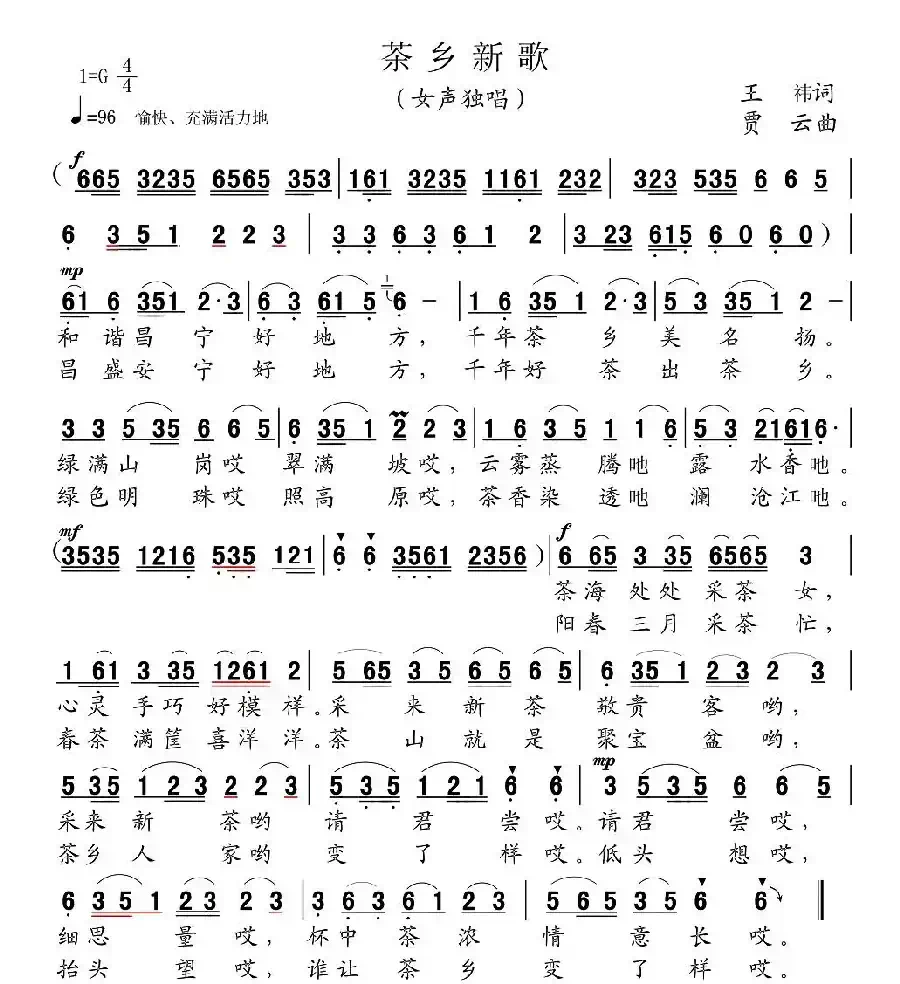 茶乡新歌
1=G 4/4
（女声独唱）
♩=96 愉快、充满活力地
王 祎词
贾 云曲
f
( 665 3235 6565 353 | 161 3235 1161 232 | 323 535 6 6 5 |
6 3 5 1 2 2 3 | 3 3 6 3 6 1 2 | 3 23 615 6 0 6 0 )
mp
61 6 351 2·3 | 6 3 61 5 6 - | 1 6 35 1 2·3 | 5 3 35 1 2 - |
和谐昌宁好地方，千年茶乡美名扬。
昌盛安宁好地方，千年好茶出茶乡。
3 3 5 35 6 6 5 | 6 35 1 2 2 3 | 1 6 35 1 1 6 | 5 3 21 61 6· |
绿满山岗哎翠满坡哎，云雾蒸腾吔露水香吔。
绿色明珠哎照高原哎，茶香染透吔澜沧江吔。
mf f
( 3535 1216 535 121 | 6 6 3561 2356 ) | 6 65 3 35 6565 3 |
茶海处处采茶女，
阳春三月采茶忙，
1 61 3 35 1261 2 | 5 65 3 5 6 5 6 5 | 6 35 1 2 3 2 3 |
心灵手巧好模样。采来新茶敬贵客哟，
春茶满筐喜洋洋。茶山就是聚宝盆哟，
mp
5 35 1 2 3 2 2 3 | 5 3 5 1 2 1 6 6 | 3 5 3 5 6 6 5 |
采来新茶哟请君尝哎。请君尝哎，
茶乡人家哟变了样哎。低头想哎，
6 3 5 1 2 3 2 3 | 3 6 3 6 1 2 3 | 5 6 5 3 5 6 6 |
细思量哎，杯中茶浓情意长哎。
抬头望哎，谁让茶乡变了样哎。